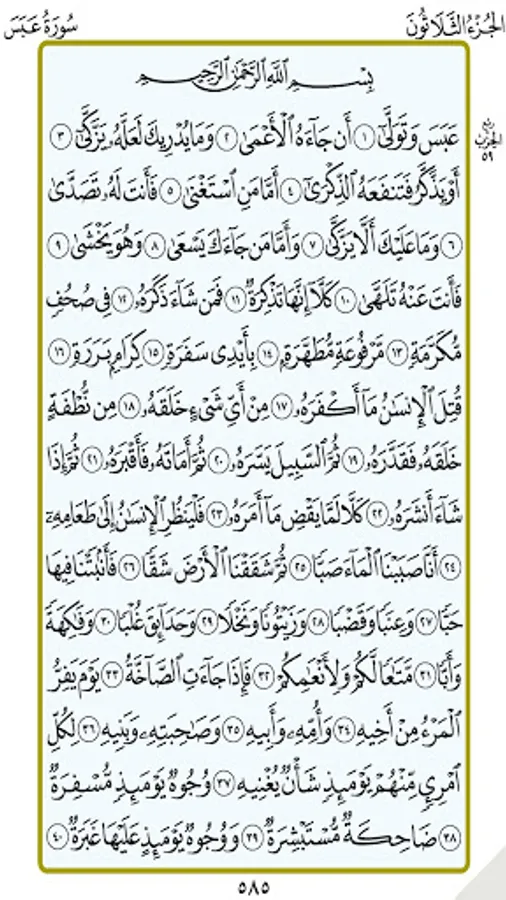 الجُزْءُ الثَّلَاثُونَ
سُورَةُ عَبَسَ
بِسْمِ اللَّهِ الرَّحْمَٰنِ الرَّحِيمِ
رُبع
الحِزْبِ
٥٩
عَبَسَ وَتَوَلَّىٰٓ ١ أَن جَآءَهُ ٱلْأَعْمَىٰ ٢ وَمَا يُدْرِيكَ لَعَلَّهُۥ يَزَّكَّىٰٓ ٣
أَوْ يَذَّكَّرُ فَتَنفَعَهُ ٱلذِّكْرَىٰٓ ٤ أَمَّا مَنِ ٱسْتَغْنَىٰ ٥ فَأَنتَ لَهُۥ تَصَدَّىٰ
٦ وَمَا عَلَيْكَ أَلَّا يَزَّكَّىٰ ٧ وَأَمَّا مَن جَآءَكَ يَسْعَىٰ ٨ وَهُوَ يَخْشَىٰ ٩
فَأَنتَ عَنْهُ تَلَهَّىٰ ١٠ كَلَّآ إِنَّهَا تَذْكِرَةٌ ١١ فَمَن شَآءَ ذَكَرَهُۥ ١٢ فِى صُحُفٍ
مُّكَرَّمَةٍ ١٣ مَّرْفُوعَةٍ مُّطَهَّرَةٍۭ ١٤ بِأَيْدِى سَفَرَةٍ ١٥ كِرَامٍۭ بَرَرَةٍ ١٦
قُتِلَ ٱلْإِنسَٰنُ مَآ أَكْفَرَهُۥ ١٧ مِنْ أَىِّ شَىْءٍ خَلَقَهُۥ ١٨ مِن نُّطْفَةٍ
خَلَقَهُۥ فَقَدَّرَهُۥ ١٩ ثُمَّ ٱلسَّبِيلَ يَسَّرَهُۥ ٢٠ ثُمَّ أَمَاتَهُۥ فَأَقْبَرَهُۥ ٢١ ثُمَّ إِذَا
شَآءَ أَنشَرَهُۥ ٢٢ كَلَّا لَمَّا يَقْضِ مَآ أَمَرَهُۥ ٢٣ فَلْيَنظُرِ ٱلْإِنسَٰنُ إِلَىٰ طَعَامِهِۦٓ
٢٤ أَنَّا صَبَبْنَا ٱلْمَآءَ صَبًّا ٢٥ ثُمَّ شَقَقْنَا ٱلْأَرْضَ شَقًّا ٢٦ فَأَنۢبَتْنَا فِيهَا
حَبًّا ٢٧ وَعِنَبًا وَقَضْبًا ٢٨ وَزَيْتُونًا وَنَخْلًا ٢٩ وَحَدَآئِقَ غُلْبًا ٣٠ وَفَٰكِهَةً
وَأَبًّا ٣١ مَّتَٰعًا لَّكُمْ وَلِأَنْعَٰمِكُمْ ٣٢ فَإِذَا جَآءَتِ ٱلصَّآخَّةُ ٣٣ يَوْمَ يَفِرُّ
ٱلْمَرْءُ مِنْ أَخِيهِ ٣٤ وَأُمِّهِۦ وَأَبِيهِ ٣٥ وَصَٰحِبَتِهِۦ وَبَنِيهِ ٣٦ لِكُلِّ
ٱمْرِئٍ مِّنْهُمْ يَوْمَئِذٍ شَأْنٌ يُغْنِيهِ ٣٧ وُجُوهٌ يَوْمَئِذٍ مُّسْفِرَةٌ
٣٨ ضَاحِكَةٌ مُّسْتَبْشِرَةٌ ٣٩ وَوُجُوهٌ يَوْمَئِذٍ عَلَيْهَا غَبَرَةٌ ٤٠
٥٨٥